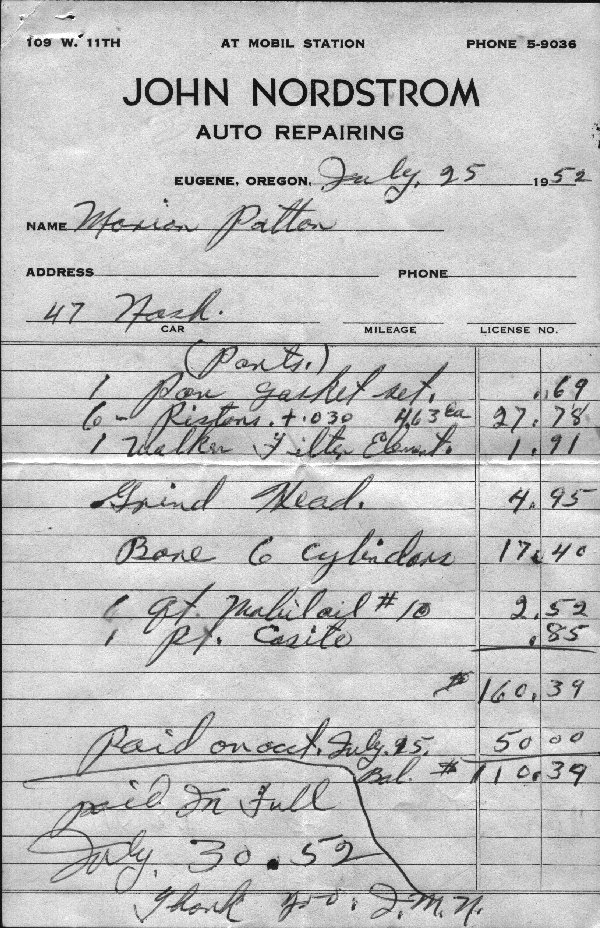 109 W. 11TH AT MOBIL STATION PHONE 5-9036
JOHN NORDSTROM
AUTO REPAIRING
EUGENE, OREGON, July, 25 1952
NAME Marion Patton
ADDRESS PHONE
47 Nash.
CAR MILEAGE LICENSE NO.
(Parts.)
1 Pan gasket set. .69
6 - Pistons. +.030 4.63 ea 27.78
1 Walker Filter Element. 1.91
Grind Head. 4.95
Bore 6 Cylinders 17.40
6 qt. Mobiloil #10 2.52
1 pt. Casite .85
$ 160.39
Paid on acct. July. 25. 50 00
Bal. $ 110.39
paid In Full
July, 30. 52
Thank you. J.M.N.